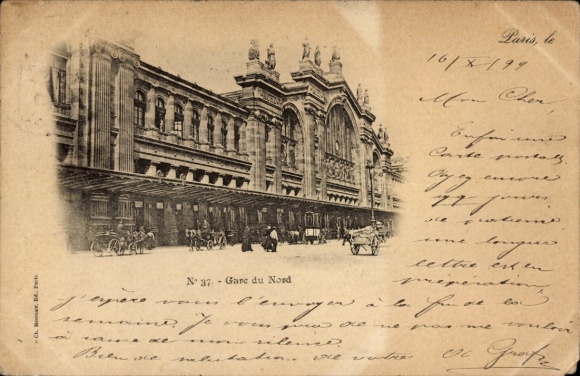 Paris, le
16/X/99
Mon Cher,
Enfin une
carte postale
Ayez encore
jours
de patience
une longue
lettre est en
préparation,
Nº 37. - Gare du Nord
J'espère vous l'envoyer à la fin de la
semaine. Je vous prie de ne pas me vouloir
à cause de mon silence.
Bien de salutation de votre
Ed. Paris